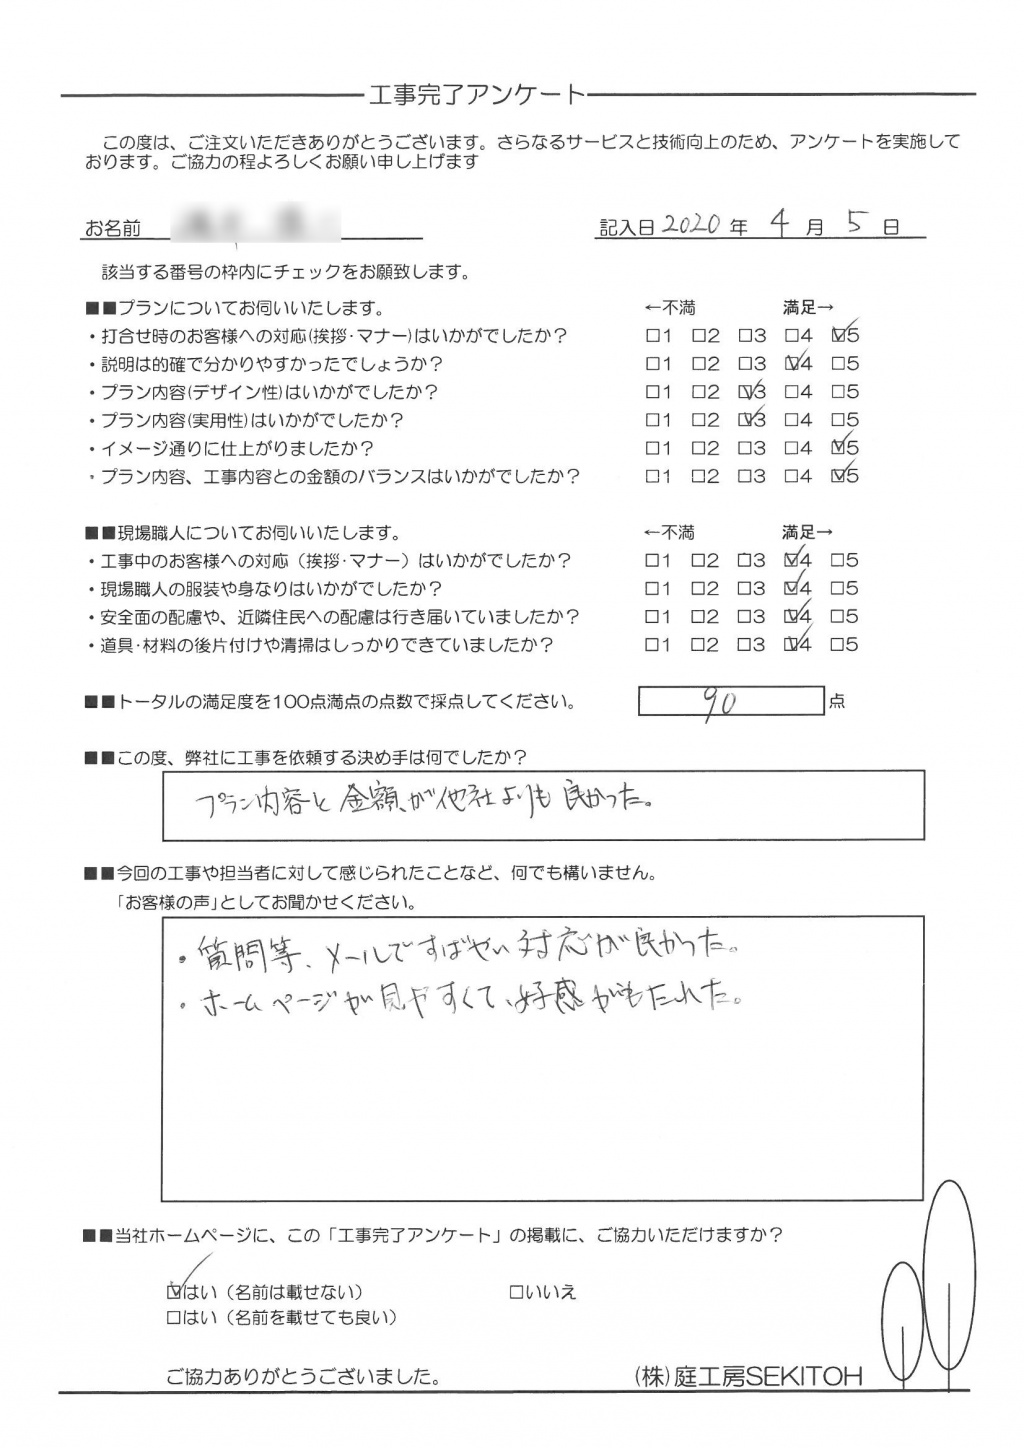 工事完了アンケート
この度は、ご注文いただきありがとうございます。さらなるサービスと技術向上のため、アンケートを実施して
おります。ご協力の程よろしくお願い申し上げます
お名前 記入日 2020 年 4 月 5 日
該当する番号の枠内にチェックをお願致します。
■■プランについてお伺いいたします。 ←不満 満足→
・打合せ時のお客様への対応(挨拶・マナー)はいかがでしたか? □1 □2 □3 □4 ☑5
・説明は的確で分かりやすかったでしょうか? □1 □2 □3 ☑4 □5
・プラン内容(デザイン性)はいかがでしたか? □1 □2 ☑3 □4 □5
・プラン内容(実用性)はいかがでしたか? □1 □2 ☑3 □4 □5
・イメージ通りに仕上がりましたか? □1 □2 □3 □4 ☑5
・プラン内容、工事内容との金額のバランスはいかがでしたか? □1 □2 □3 □4 ☑5
■■現場職人についてお伺いいたします。 ←不満 満足→
・工事中のお客様への対応(挨拶・マナー)はいかがでしたか? □1 □2 □3 ☑4 □5
・現場職人の服装や身なりはいかがでしたか? □1 □2 □3 ☑4 □5
・安全面の配慮や、近隣住民への配慮は行き届いていましたか? □1 □2 □3 ☑4 □5
・道具・材料の後片付けや清掃はしっかりできていましたか? □1 □2 □3 ☑4 □5
■■トータルの満足度を100点満点の点数で採点してください。 90 点
■■この度、弊社に工事を依頼する決め手は何でしたか?
プラン内容と金額が他社よりも良かった。
■■今回の工事や担当者に対して感じられたことなど、何でも構いません。
「お客様の声」としてお聞かせください。
・質問等、メールですばやい対応が良かった。
・ホームページが見やすくて、好感がもたれた。
■■当社ホームページに、この「工事完了アンケート」の掲載に、ご協力いただけますか?
☑はい(名前は載せない) □いいえ
□はい(名前を載せても良い)
ご協力ありがとうございました。 (株)庭工房SEKITOH